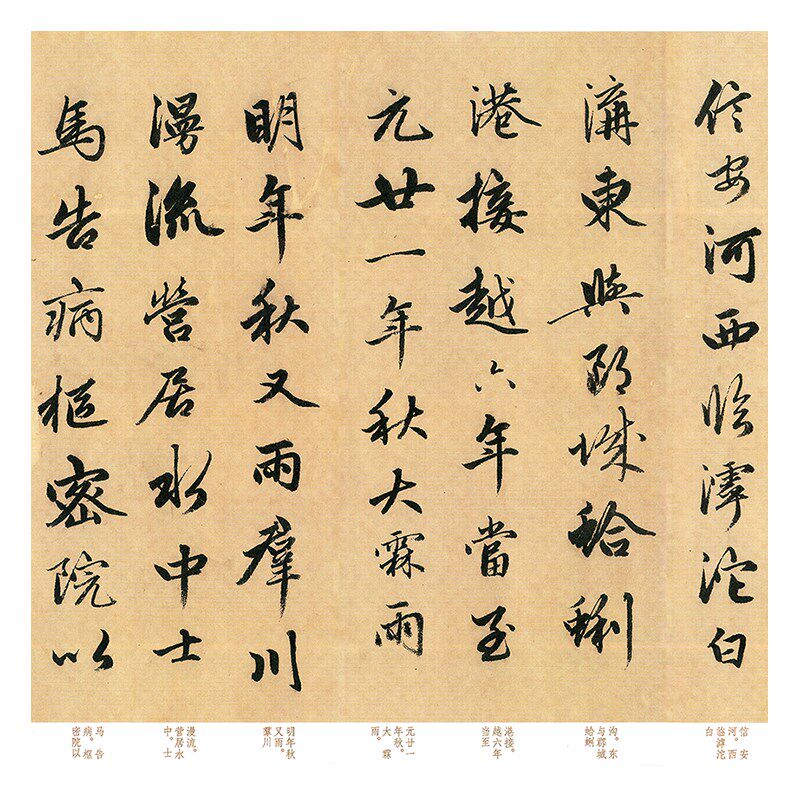 信安河西臨滹沱白
溝東與郡城蛤蜊
港接越六年當至
元廿一年秋大霖雨
明年秋又雨羣川
漫流營居水中士
馬告病樞密院以
信安
河。西
临滹沱
白
沟。东
与郡城
蛤蜊
港接。
越六年
当至
元廿一
年秋。
大霖
雨。
明年秋
又雨。
羣川
漫流。
营居水
中。士
马告
病。枢
密院以